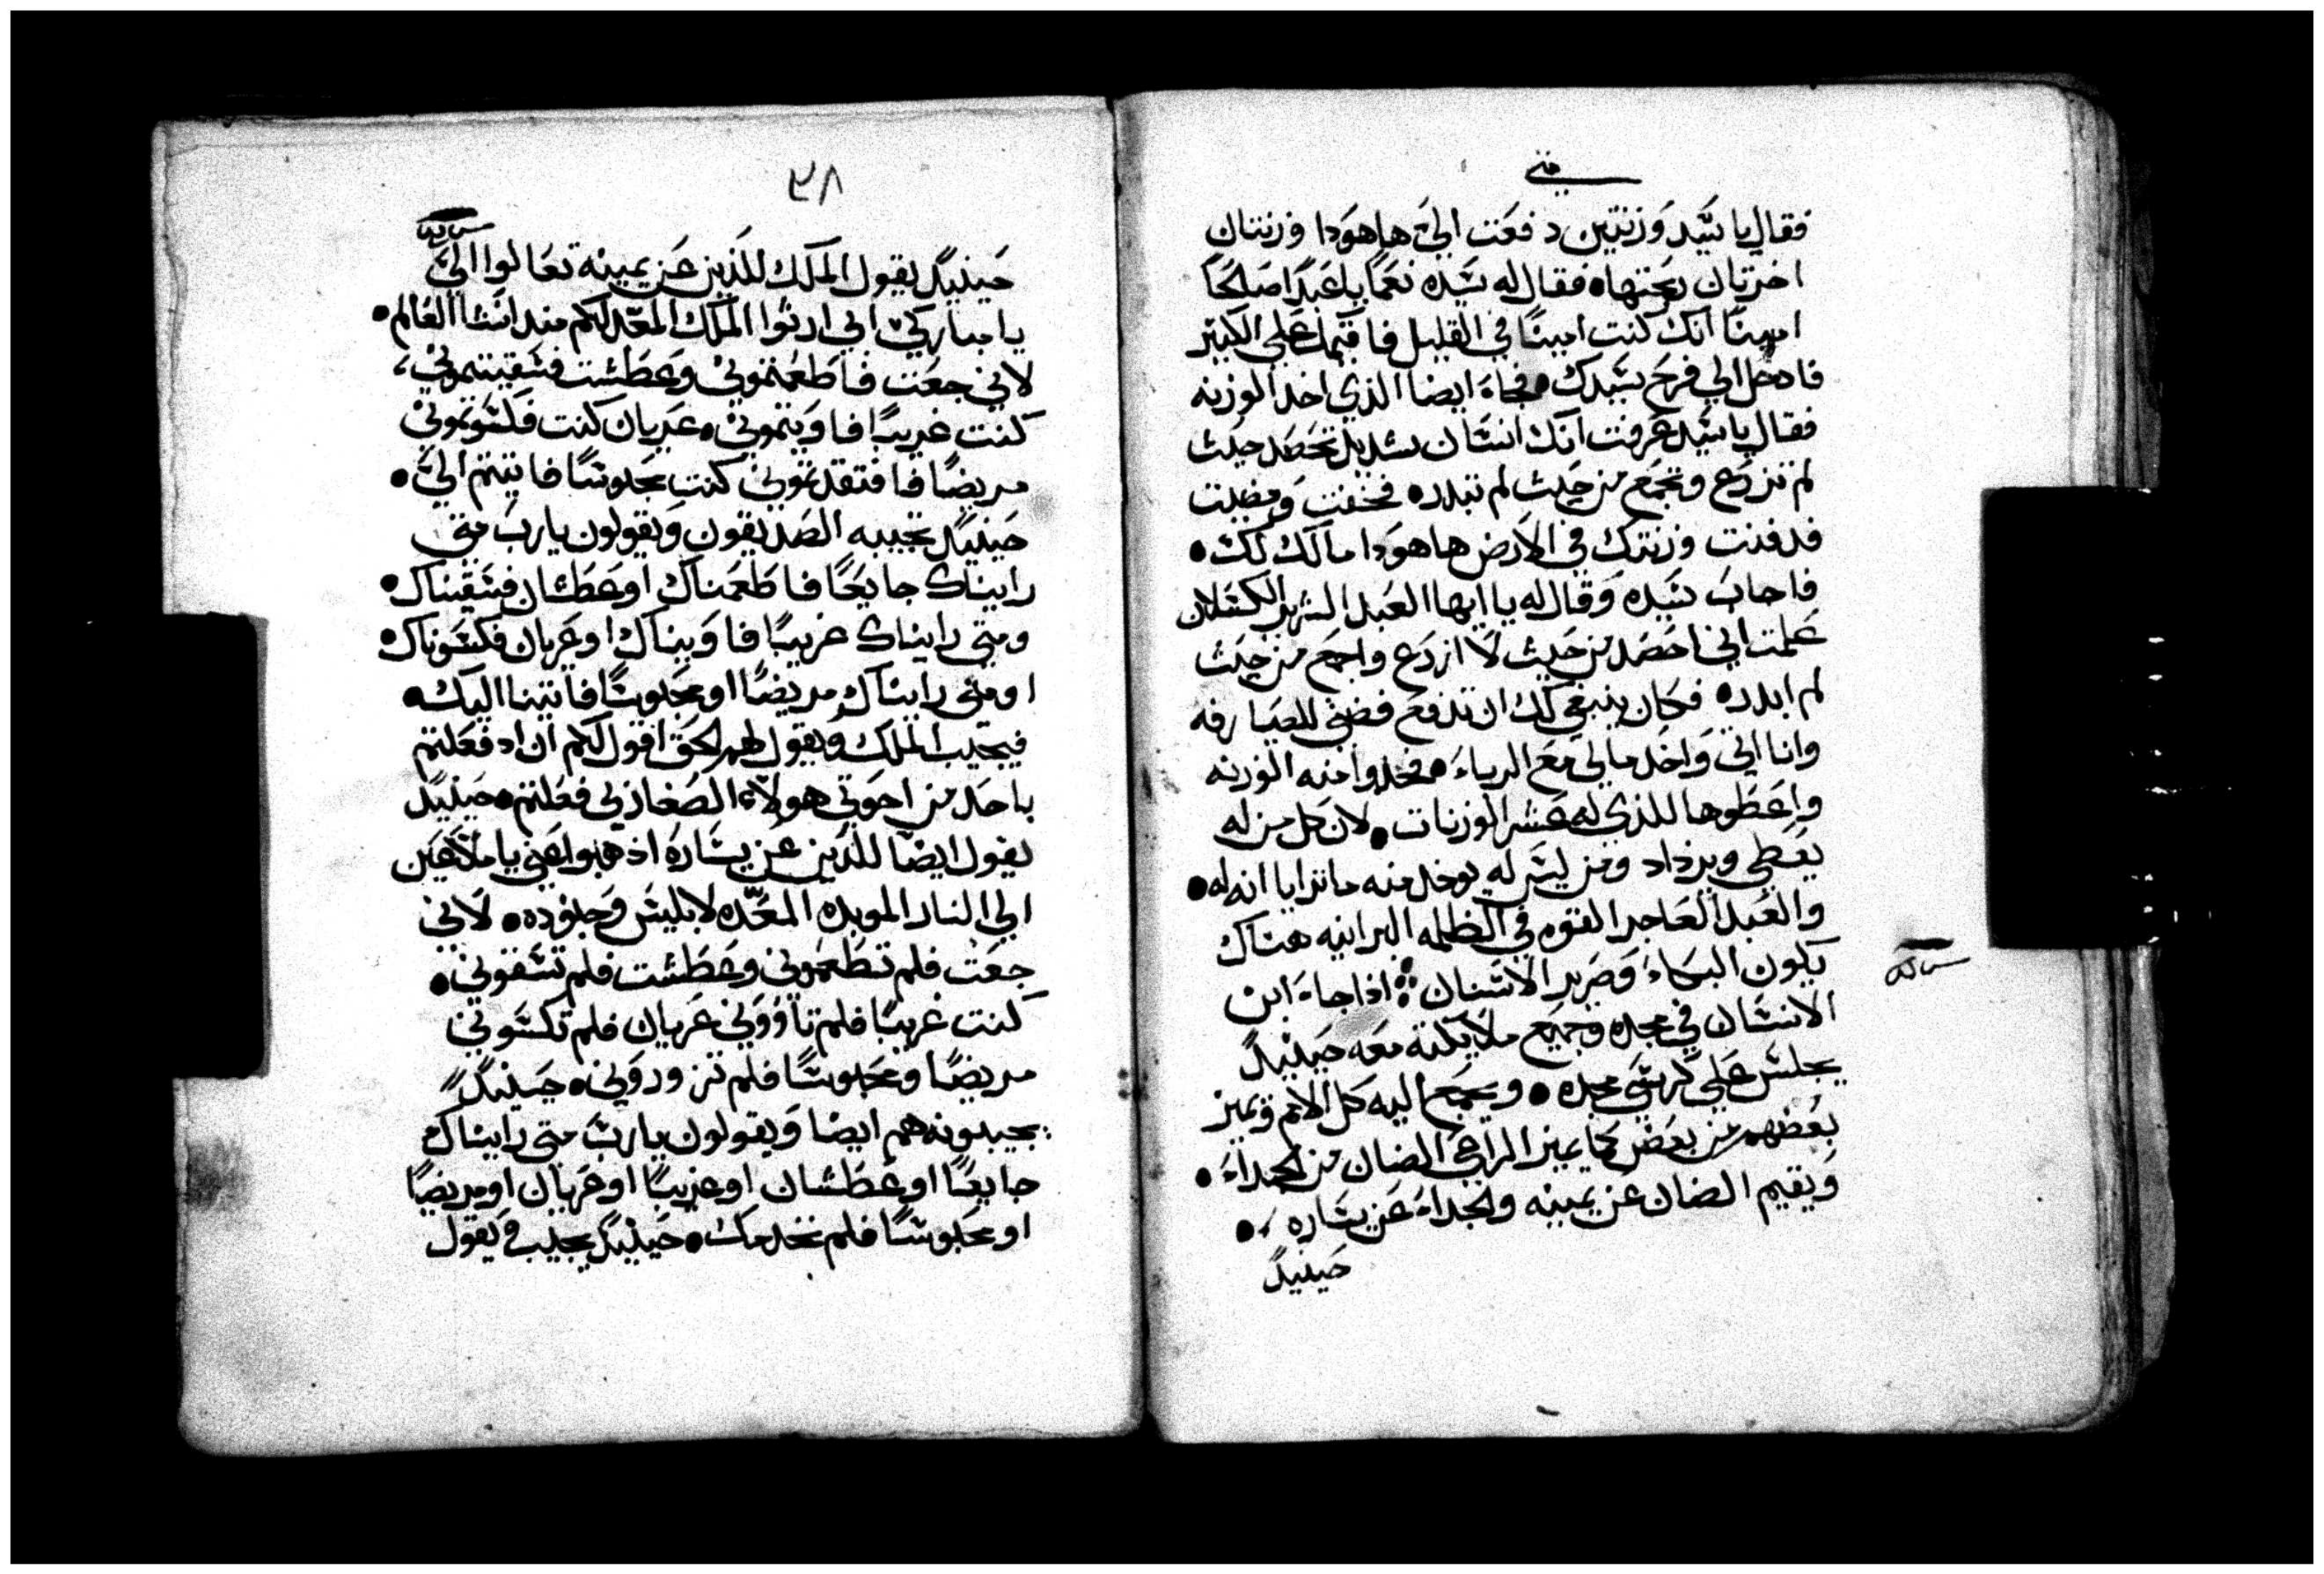 متى
فقال يا سيد وزنتين دفعت الي ها هودا وزنتان
اخرتان ربحتهاه فقال له سيده نعما يا عبدا صالحا
امينا انك كنت امينا في القليل فاقيمك علي الكثير
فادخل الي فرح سيدك • فجاء ايضا الذي اخد الوزنه
فقال يا سيد عرفت انك انسان شديد تحصد حيث
لم تزرع وتجمع من حيث لم تبدره فخفت ومضيت
فدفنت وزنتك في الارض ها هودا مالك لك •
فاجاب سيده وقال له يا ايها العبد الشرير الكسلان
علمت اني احصد من حيث لا ازرع واجمع من حيث
لم ابدره فكان ينبغي لك ان تدفع فضتي للصيارفه
وانا اتي واخد مالي مع الرباء • فخدوا منه الوزنه
واعطوها للذي له عشر الوزنات • لان كل من له
يعطي ويزداد ومن ليس له يوخد منه ما ترايا انه له •
والعبد العاجر القوه في الظلمه البرانيه هناك
يكون البكاء وصرير الاسنان ⁘ ادا جاء ابن
الانسان في مجده وجميع ملايكته معه حينيد
يجلس علي كرسي مجده • ويجمع اليه كل الامم ويميز
بعضهم من بعض كما يميز الراعي الضان من الجداء •
ويقيم الضان عن يمينه والجداء عن يساره •
حينيد
٣٨
حينيد يقول الملك للذين عن يمينه تعالوا الي
يا مباركي ابي ارثوا الملك المعد لكم مند انشا العالم •
لاني جعت فاطعمتموني وعطشت فسقيتموني،
كنت غريبا فاويتموني • عريان كنت فكسوتموني
مريضا فافتقدتموني كنت محبوسا فاتيتم الي •
حينيد تجيبه الصديقون ويقولون يا رب متي
رايناك جايعا فاطعمناك او عطشان فسقيناك •
ومتي رايناك غريبا فاويناك او عريان فكسوناك •
او متي رايناك مريضا او محبوسا فاتينا اليك •
فيجيب الملك ويقول لهم الحق اقول لكم ان اد فعلتم
باحد من اخوتي هولاء الصغار بي فعلتم • حينيد
يقول ايضا للذين عن يساره ادهبوا عني يا ملاعين
الي النار الموبده المعده لابليس وجنوده • لاني
جعت فلم تطعموني وعطشت فلم تسقوني •
كنت غريبا فلم تاووني عريان فلم تكسوني
مريضا ومحبوسا فلم تزوروني • حينيد
يجيبونه هم ايضا ويقولون يا رب متي رايناك
جايعا او عطشان او غريبا او عريان او مريضا
او محبوسا فلم نخدمك • حينيد يجيب ويقول